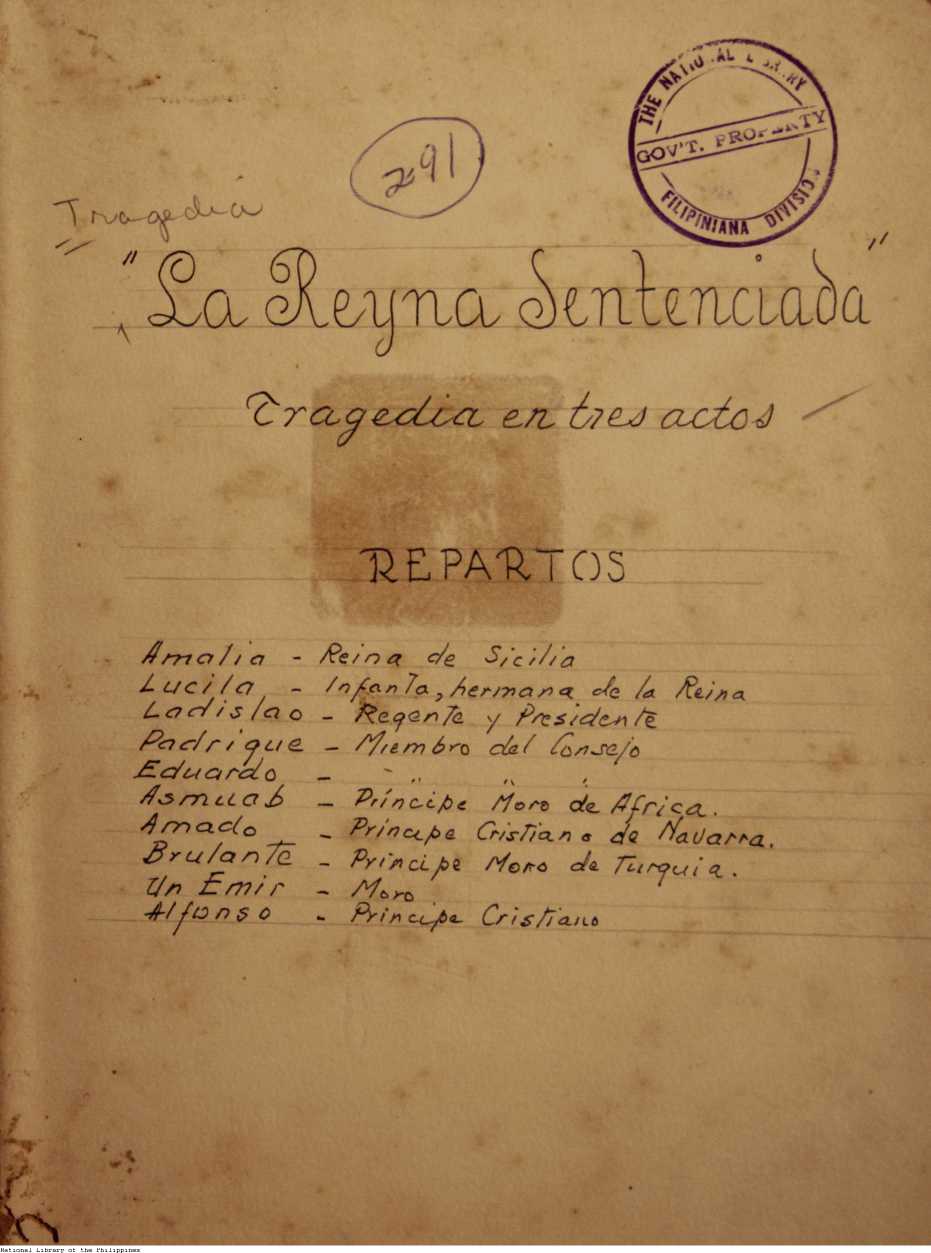 THE NATIONAL LIBRARY
GOV'T. PROPERTY
FILIPINIANA DIVISION
291
Tragedia
"La Reyna Sentenciada"
Tragedia en tres actos
REPARTOS
Amalia - Reina de Sicilia
Lucila - Infanta, hermana de la Reina
Ladislao - Regente y Presidente
Padrique - Miembro del Consejo
Eduardo - " " "
Asmuab - Príncipe Moro de África.
Amado - Príncipe Cristiano de Navarra.
Brulante - Príncipe Moro de Turquia.
Un Emir - Moro
Alfonso - Príncipe Cristiano
National Library of the Philippines